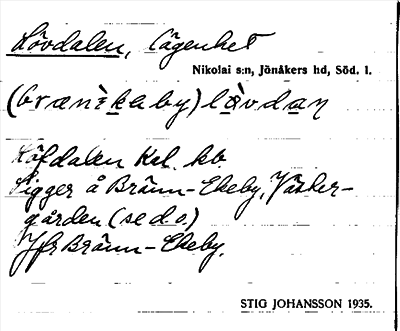 Lövdalen, Lägenhet
Nikolai s:n, Jönåkers hd, Söd. l.
(bræn:ekaby) lövdan
Löfdalen Kal. kb
Ligger å Bränn-Ekeby, Väster-
gården (se d.o.)
Jfr Bränn-Ekeby.
STIG JOHANSSON 1935.